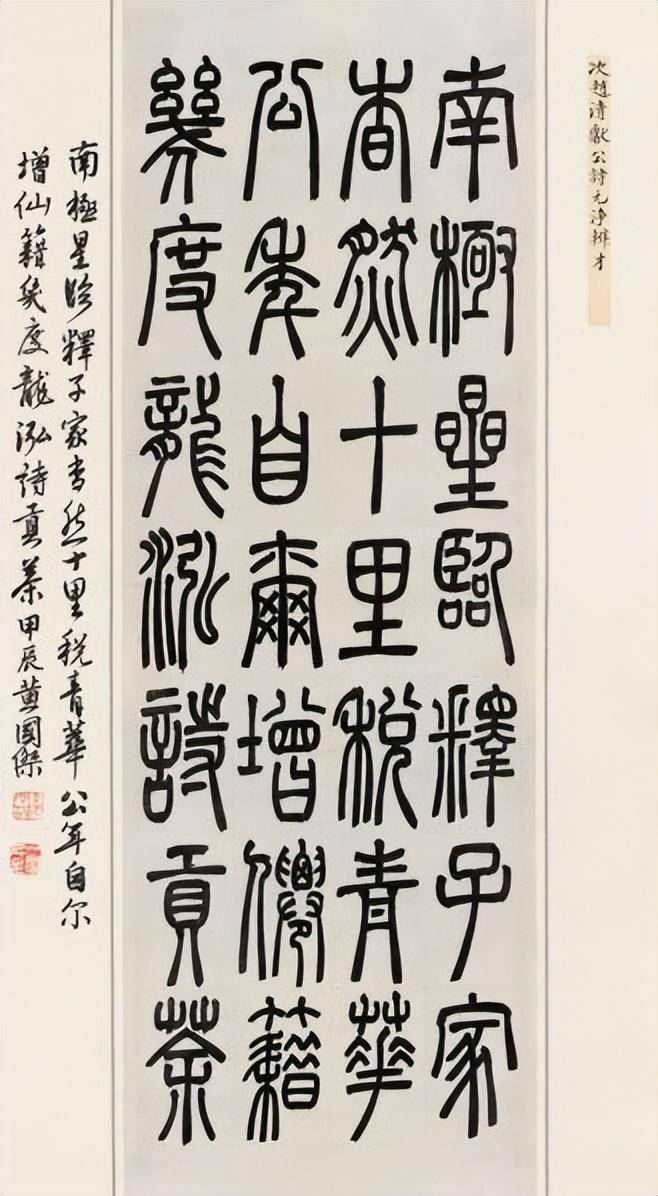 次趙清獻公詩元淨辨才
南極星臨釋子家
杳然十里税青華
公年自爾增僊籍
幾度龍泓詩貢茶
南極星臨釋子家杳然十里税青華公年自尔
增仙籍幾度龍泓詩貢茶甲辰黄國傑